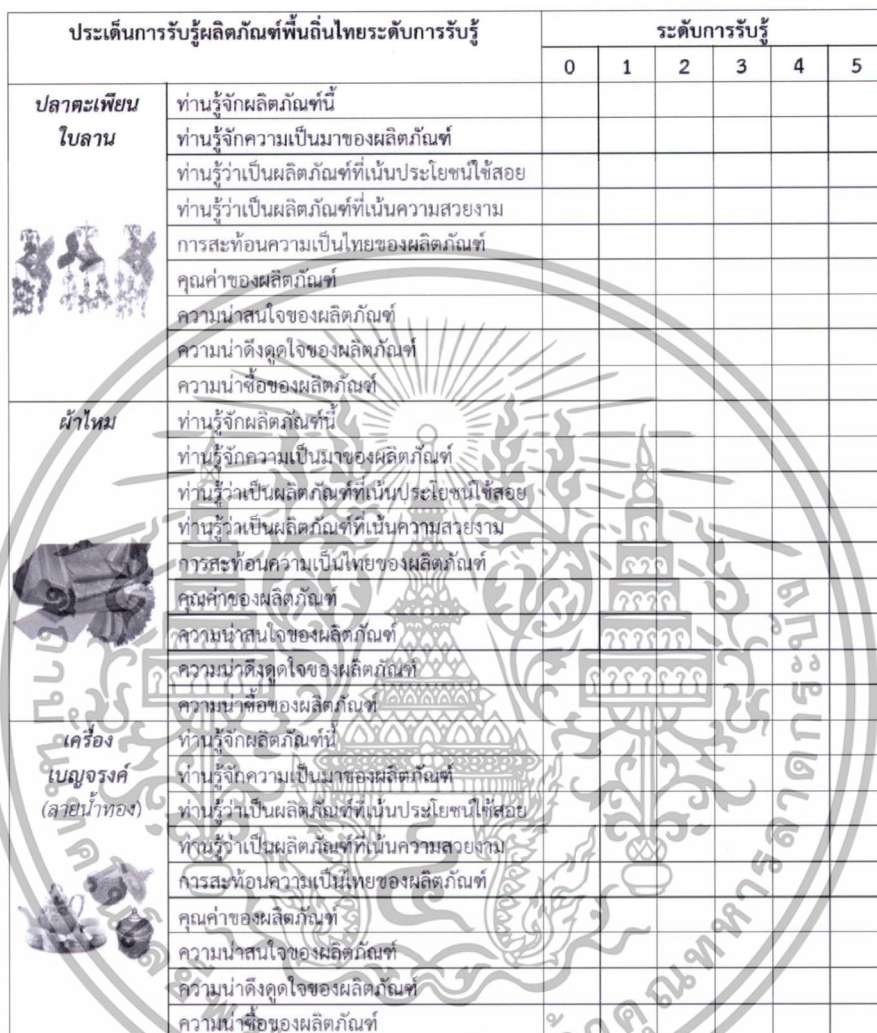 ประเด็นการรับรู้ผลิตภัณฑ์พื้นถิ่นไทยระดับการรับรู้ ระดับการรับรู้
0 1 2 3 4 5
ปลาตะเพียน ท่านรู้จักผลิตภัณฑ์นี้
ใบลาน ท่านรู้จักความเป็นมาของผลิตภัณฑ์
ท่านรู้ว่าเป็นผลิตภัณฑ์ที่เน้นประโยชน์ใช้สอย
ท่านรู้ว่าเป็นผลิตภัณฑ์ที่เน้นความสวยงาม
การสะท้อนความเป็นไทยของผลิตภัณฑ์
คุณค่าของผลิตภัณฑ์
ความน่าสนใจของผลิตภัณฑ์
ความน่าดึงดูดใจของผลิตภัณฑ์
ความน่าซื้อของผลิตภัณฑ์
ผ้าไหม ท่านรู้จักผลิตภัณฑ์นี้
ท่านรู้จักความเป็นมาของผลิตภัณฑ์
ท่านรู้ว่าเป็นผลิตภัณฑ์ที่เน้นประโยชน์ใช้สอย
ท่านรู้ว่าเป็นผลิตภัณฑ์ที่เน้นความสวยงาม
การสะท้อนความเป็นไทยของผลิตภัณฑ์
คุณค่าของผลิตภัณฑ์
ความน่าสนใจของผลิตภัณฑ์
ความน่าดึงดูดใจของผลิตภัณฑ์
ความน่าซื้อของผลิตภัณฑ์
เครื่อง ท่านรู้จักผลิตภัณฑ์นี้
เบญจรงค์ ท่านรู้จักความเป็นมาของผลิตภัณฑ์
(ลายน้ำทอง) ท่านรู้ว่าเป็นผลิตภัณฑ์ที่เน้นประโยชน์ใช้สอย
ท่านรู้ว่าเป็นผลิตภัณฑ์ที่เน้นความสวยงาม
การสะท้อนความเป็นไทยของผลิตภัณฑ์
คุณค่าของผลิตภัณฑ์
ความน่าสนใจของผลิตภัณฑ์
ความน่าดึงดูดใจของผลิตภัณฑ์
ความน่าซื้อของผลิตภัณฑ์